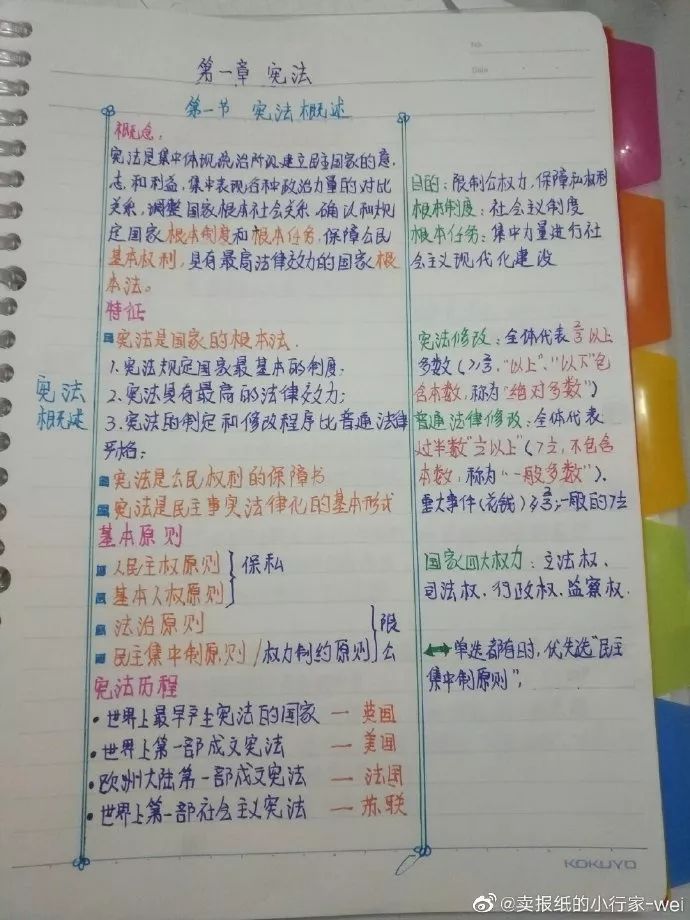 No.
Date
第一章 宪法
第一节 宪法概述
概念：
宪法是集中体现统治阶级建立民主国家的意
志和利益，集中表现各种政治力量的对比
关系，调整国家根本社会关系，确认和规
定国家根本制度和根本任务，保障公民
基本权利，具有最高法律效力的国家根
本法。
特征
宪法是国家的根本法.
1.宪法规定国家最基本的制度；
2.宪法具有最高的法律效力；
3.宪法的制定和修改程序比普通法律
严格；
宪法是公民权利的保障书
宪法是民主事实法律化的基本形式
基本原则
人民主权原则
基本人权原则
保私
法治原则
民主集中制原则/权力制约原则
限
公
宪法历程
·世界上最早产生宪法的国家 — 英国
·世界上第一部成文宪法 — 美国
·欧洲大陆第一部成文宪法 — 法国
·世界上第一部社会主义宪法 — 苏联
宪法
概述
目的：限制公权力，保障私权利
根本制度：社会主义制度
根本任务：集中力量进行社
会主义现代化建设
宪法修改：全体代表⅔以上
多数（≥⅔，"以上"、"以下"包
含本数，称为"绝对多数"）
普通法律修改：全体代表
过半数"½以上"（>½，不包含
本数，称为"一般多数"）.
重大事件（花钱）≥⅔；一般的>½
国家四大权力：立法权、
司法权、行政权、监察权.
单选都有时，优先选"民主
集中制原则".
KOKUYO
@卖报纸的小行家-wei